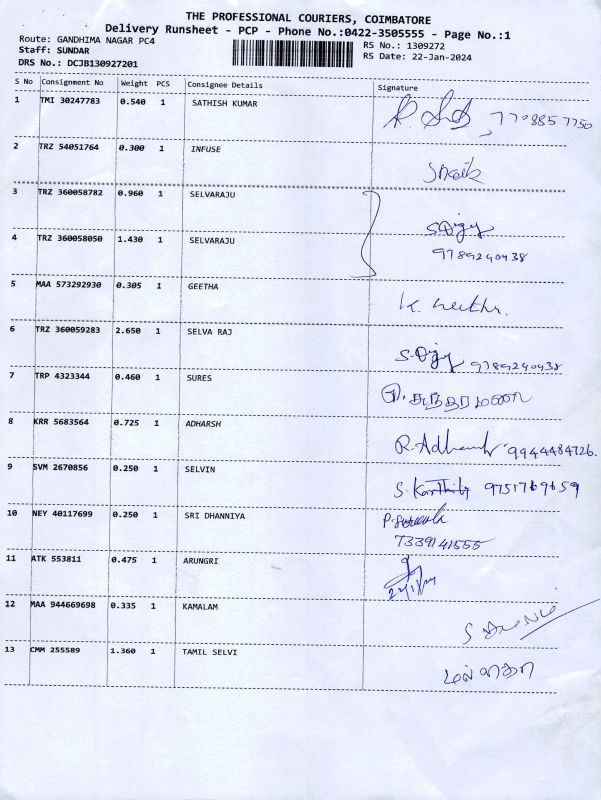 THE PROFESSIONAL COURIERS, COIMBATORE
Delivery Runsheet - PCP - Phone No.:0422-3505555 - Page No.:1
Route: GANDHIMA NAGAR PC4
RS No.: 1309272
Staff: SUNDAR
RS Date: 22-Jan-2024
DRS No.: DCJB130927201
S No Consignment No Weight PCS Consignee Details Signature
1 TMI 30247783 0.540 1 SATHISH KUMAR 7708857750
2 TRZ 54051764 0.300 1 INFUSE
3 TRZ 360058782 0.960 1 SELVARAJU
4 TRZ 360058050 1.430 1 SELVARAJU 9789240438
5 MAA 573292930 0.305 1 GEETHA
6 TRZ 360059283 2.650 1 SELVA RAJ 9789240438
7 TRP 4323344 0.460 1 SURES
8 KRR 5683564 0.725 1 ADHARSH R.Adharsh 9944484726.
9 SVM 2670856 0.250 1 SELVIN S. Karthik 9751769659
10 NEY 40117699 0.250 1 SRI DHANNIYA
7339141555
11 ATK 553811 0.475 1 ARUNGRI
22/1/24
12 MAA 944669698 0.335 1 KAMALAM
13 CMM 255589 1.360 1 TAMIL SELVI